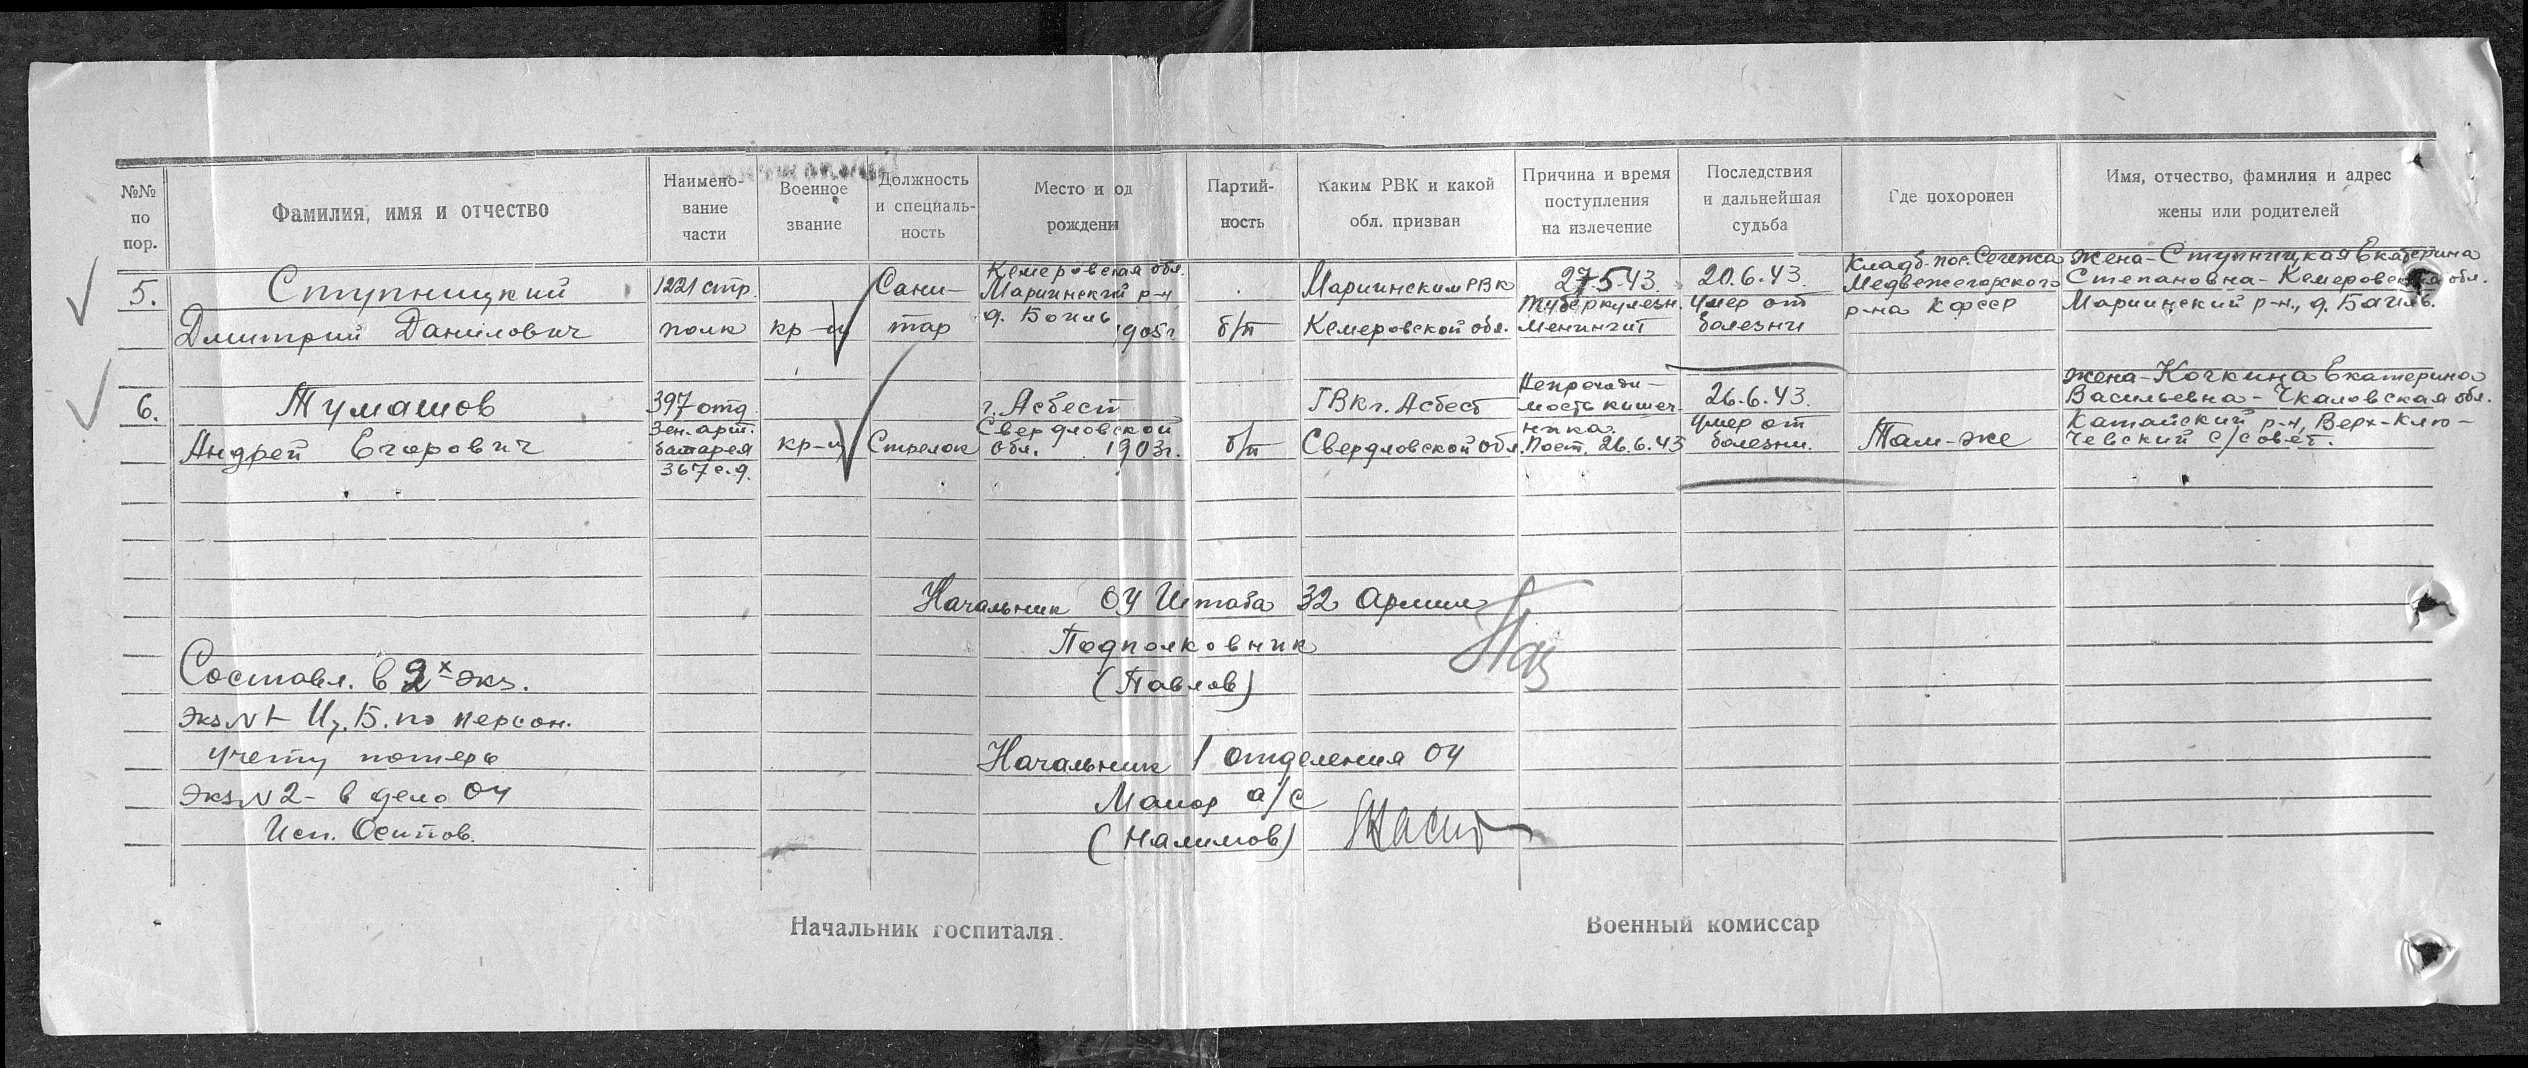 №№ по пор.
Фамилия, имя и отчество
Наимено-
вание
части
Военное
звание
Должность
и специаль-
ность
Место и од
рождени
Партий-
ность
Каким РВК и какой
обл. призван
Причина и время
поступления
на излечение
Последствия
и дальнейшая
судьба
Где похоронен
Имя, отчество, фамилия и адрес
жены или родителей
5.
Ступницкий
Дмитрий Данилович
1221 стр.
полк
кр-ц
Сани-
тар
Кемеровская обл.
Мариинский р-н
д. Богиль
1905 г.
б/п
Мариинским РВК
Кемеровской обл.
27.5.43.
Туберкулезн.
менингит
20.6.43.
Умер от
болезни
Кладб. пос. Сегежа
Медвежегорского
р-на КФССР
Жена - Ступницкая Екатерина
Степановна - Кемеровская обл.
Мариинский р-н, д. Багиль.
6.
Тумашов
Андрей Егорович
397 отд.
Зен. арт.
батарея
367 с.д.
кр-ц
Стрелок
г. Асбест
Свердловской
обл. 1903г.
б/п
ГВК г. Асбест
Свердловской обл.
Непроходи-
мость кишеч-
ника.
Пост. 26.6.43
26.6.43.
Умер от
болезни.
Там-же
Жена - Кочкина Екатерина
Васильевна - Чкаловская обл.
Катайский р-н, Верх-Клю-
чевский с/совет.
Начальник ОУ Штаба 32 Армии
Подполковник
(Павлов)
Составл. в 2х экз.
Экз N 1 - Ц.Б. по персон.
учету потерь
Экз N 2 - в дело ОУ
Исп. Осипов.
Начальник 1 отделения ОУ
Майор а/с
(Налимов)
Начальник госпиталя
Военный комиссар